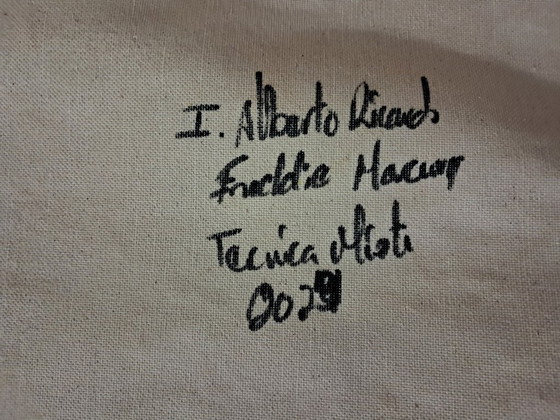 I. Alberto Ricardo
Freddie Marcury
Tecnica Mista